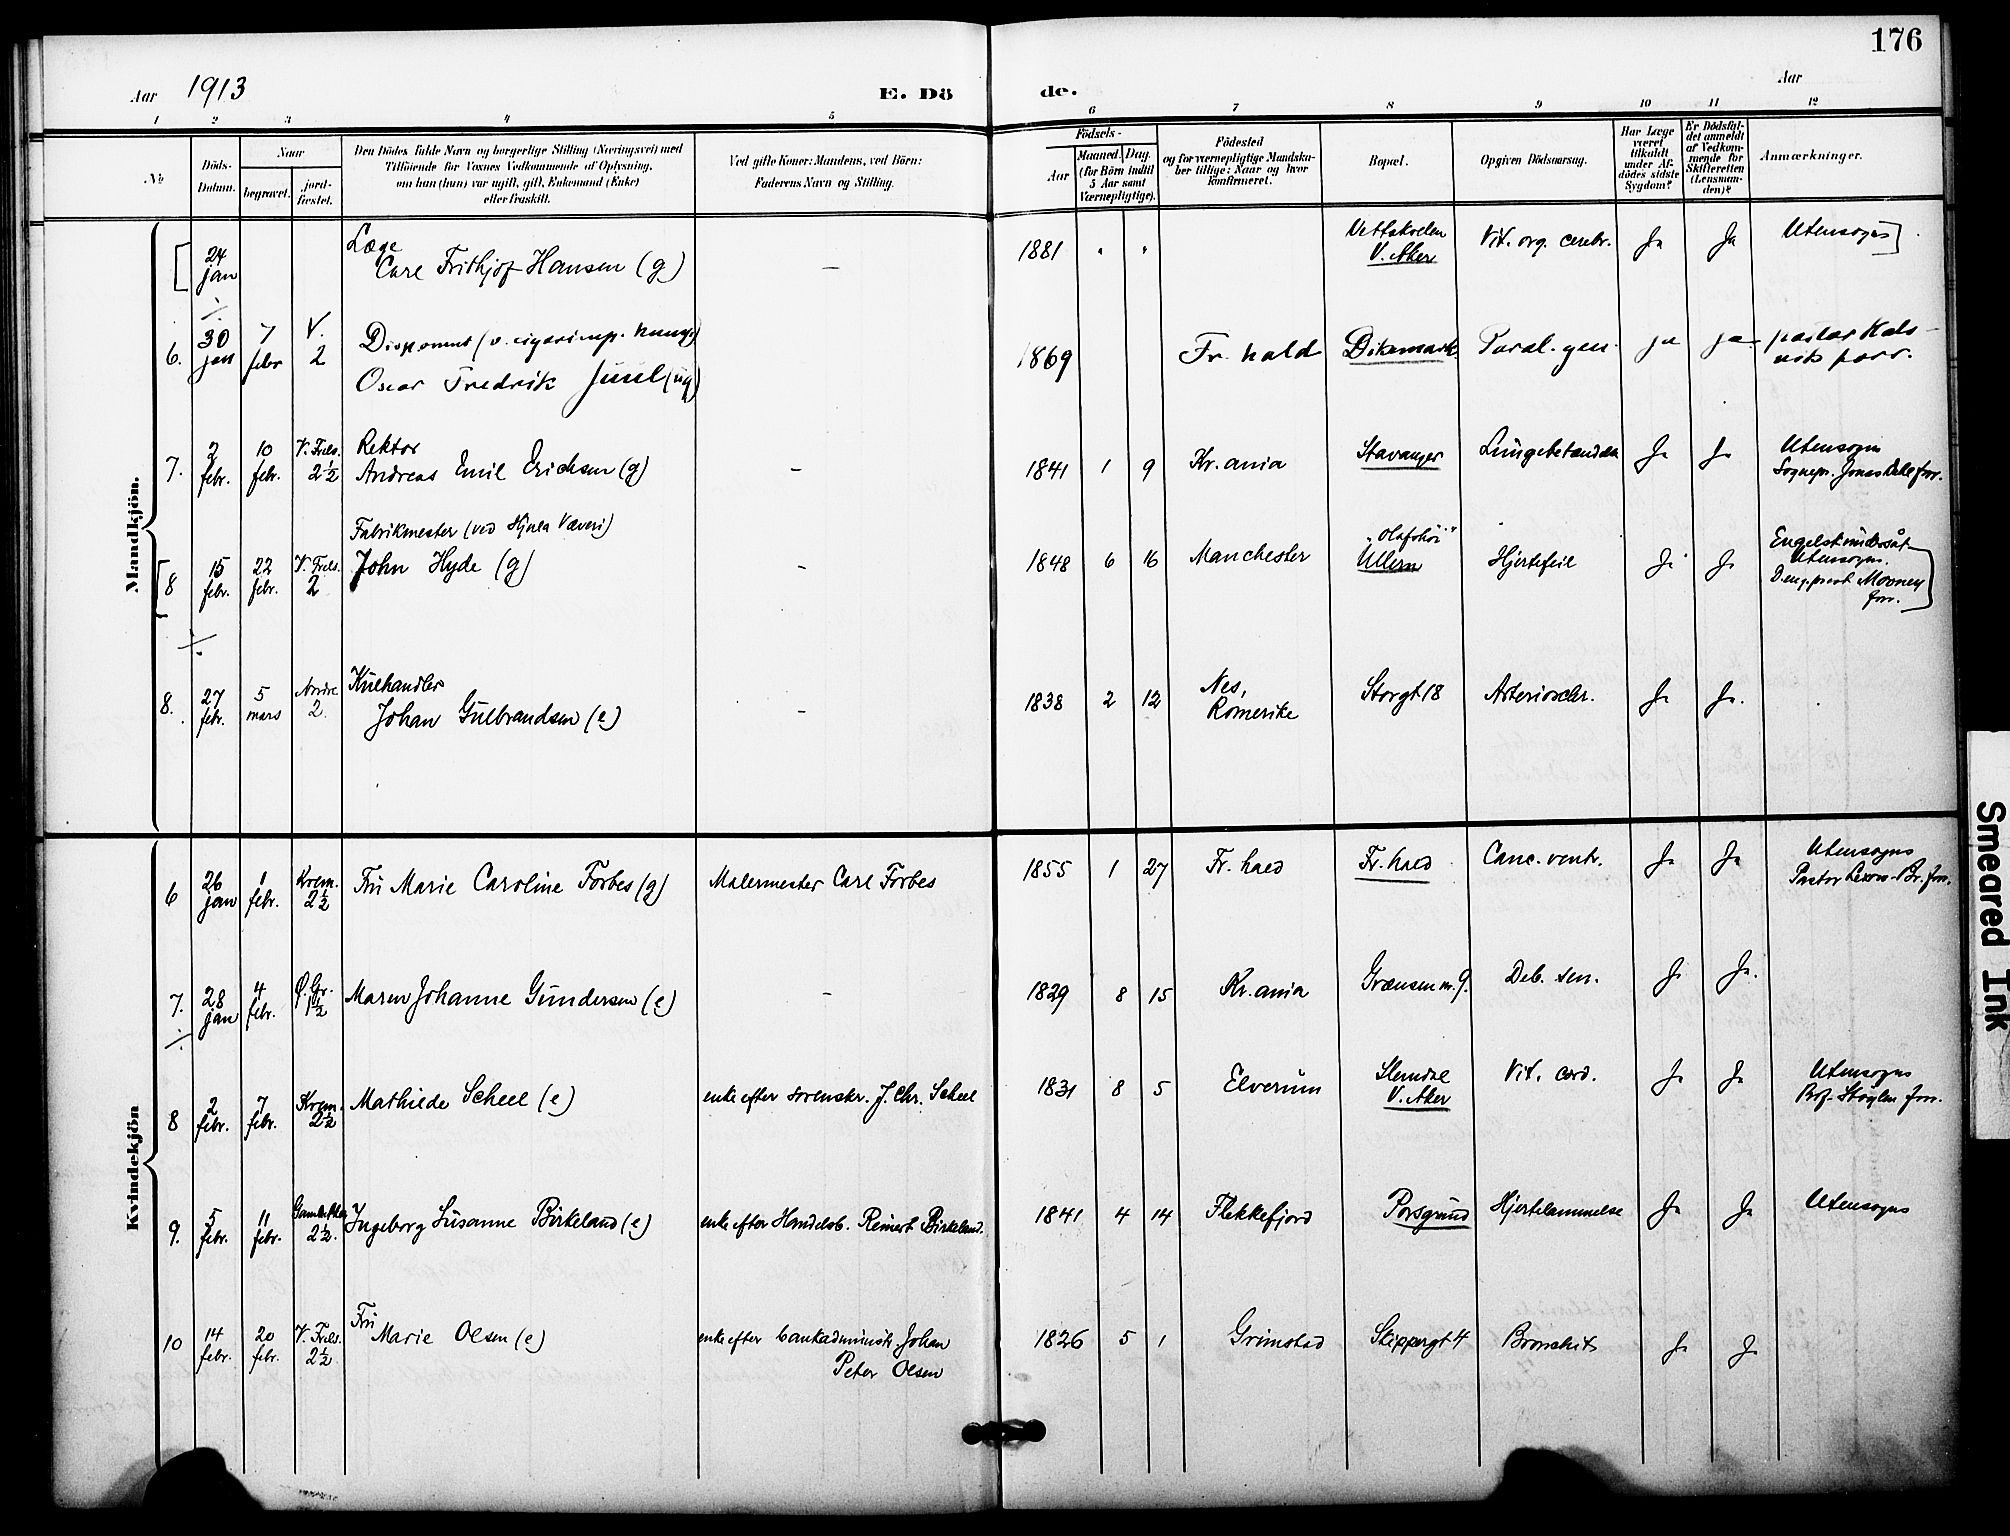 176
Aar 1913
E. Dö de.
Aar
1 2 3 4 5 6 7 8 9 10 11 12
No
Döds-
Datum.
Naar
begravet.
jord-
fæstet.
Den Dödes fulde Navn og borgerlige Stilling (Næringsvei) med
Tilföiende for Voxnes Vedkommende af Oplysning,
om han (hun) var ugift, gift, Enkemand (Enke)
eller fraskilt.
Ved gifte Koner: Mandens, ved Börn:
Faderens Navn og Stilling.
Födsels-
Aar
Maaned. Dag.
(for Börn indtil
5 Aar samt
Værnepligtige).
Födested
og for værnepligtige Mandska-
ber tillige: Naar og hvor
konfirmeret.
Bopæl.
Opgiven Dödsaarsag.
Har Læge
været
tilkaldt
under Af-
dödes sidste
Sygdom?
Er Dödsfal-
det anmeldt
af Vedkom-
mende for
Skifteretten
(Lensman-
den)?
Anmærkninger.
Mandkjön.
24 jan
Læge
Carl Frithjof Hansen (g)
—
1881 " "
Vettakolen
V. Aker
Vit. org. cerebr. Ja Ja Utensogns
6. 30 jan 7 febr V. 2
Disponent
Oscar Fredrik Juul (ug)
1869 Fr. hald Dikemark Paral. gen. ja ja
pastor
forr.
7. 2 febr. 10 febr. V. Frels. 2½
Rektor
Andreas Emil Erichsen (g)
—
1841 1 9 Kr.ania Stavanger Lungebetændelse Ja Ja
Utensogns
Sognepr. Jonas Dahl forr.
8 15 febr. 22 febr. V. Frels. 2
Fabrikmester (ved Hjula Væveri)
John Hyde (g)
—
1848 6 16 Manchester
"Olafshöi"
Ullern
Hjertefeil Ja Ja
Engelsk undersåt
Utensogns.
D. eng. prest Mooney
forr.
8. 27 febr. 5 mars Nordre 2
Kulhandler
Johan Gulbrandsen (e)
—
1838 2 12
Nes,
Romerike
Storgt 18 Arterioscler. Ja Ja.
Kvindekjön
6 26 jan 1 febr. Krem. 2½ Fru Marie Caroline Forbes (g) Malermester Carl Forbes
1855 1 27 Fr. hald Fr. hald Canc. ventr. Ja Ja
Utensogns
Pastor forr.
7. 28 jan 4 febr. Ø. Gr. 1½ Maren Johanne Gundersen (e) —
1829 8 15 Kr.ania Grænsen nr. 9. Deb. sen. Ja Ja.
8 2 febr. 7 febr. Krem. 2½ Mathilde Scheel (e) enke efter sorenskr. J. Chr. Scheel
1831 8 5 Elverum
Slemdal
V. Aker
Vit. cord. Ja Ja
Utensogns
Prof. Støylen forr.
9. 5 febr. 11 febr. Gamle Aker 2½. Ingeborg Susanne Birkeland (e) enke efter Handelsb. Reinert Birkeland.
1841 4 14 Flekkefjord Porsgrund Hjertelammelse Ja Ja Utensogns
10 14 febr. 20 febr. V. Frels. 2½
Fru
Marie Olsen (e)
enke efter bankadminist. Johan
Peter Olsen
1826 5 1 Grimstad Skippergt 4 Bronchit Ja Ja
Smeared Ink